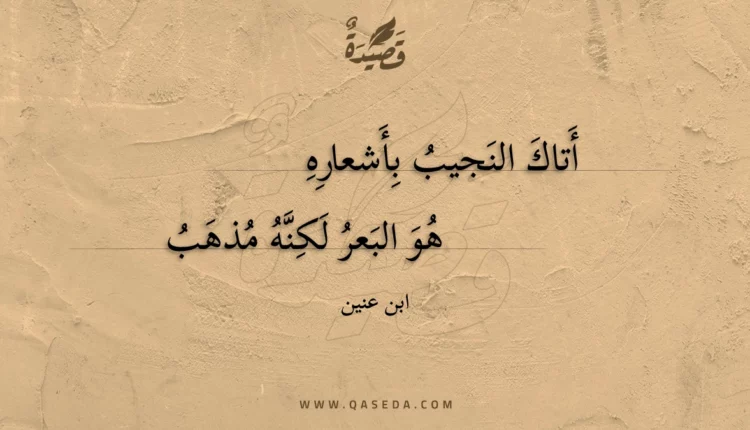 قَصِيْدَةٌ
أَتاكَ النَجيبُ بِأَشعارِهِ
هُوَ البَعرُ لَكِنَّهُ مُذهَبُ
ابن عنين
WWW.QASEDA.COM